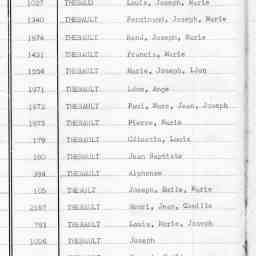 1027 THEBAUD Louis, Joseph, Marie
1340 THEBAULT Ferdinand, Joseph, Marie
1974 THEBAULT René, Joseph, Marie
1431 THEBAULT Francis, Marie
1554 THEBAULT Marie, Joseph, Léon
1971 THEBAULT Léon, Ange
1972 THEBAULT Paul, Marc, Jean, Joseph
1973 THEBAULT Pierre, Marie
179 THEBAULT Célestin, Louis
180 THEBAULT Jean Baptiste
394 THEBAULT Alphonse
105 THEBAULT Joseph, Emile, Marie
2167 THEBAULT Henri, Jean, Camille
793 THEBAULT Louis, Marie, Joseph
1006 THEBAULT Joseph